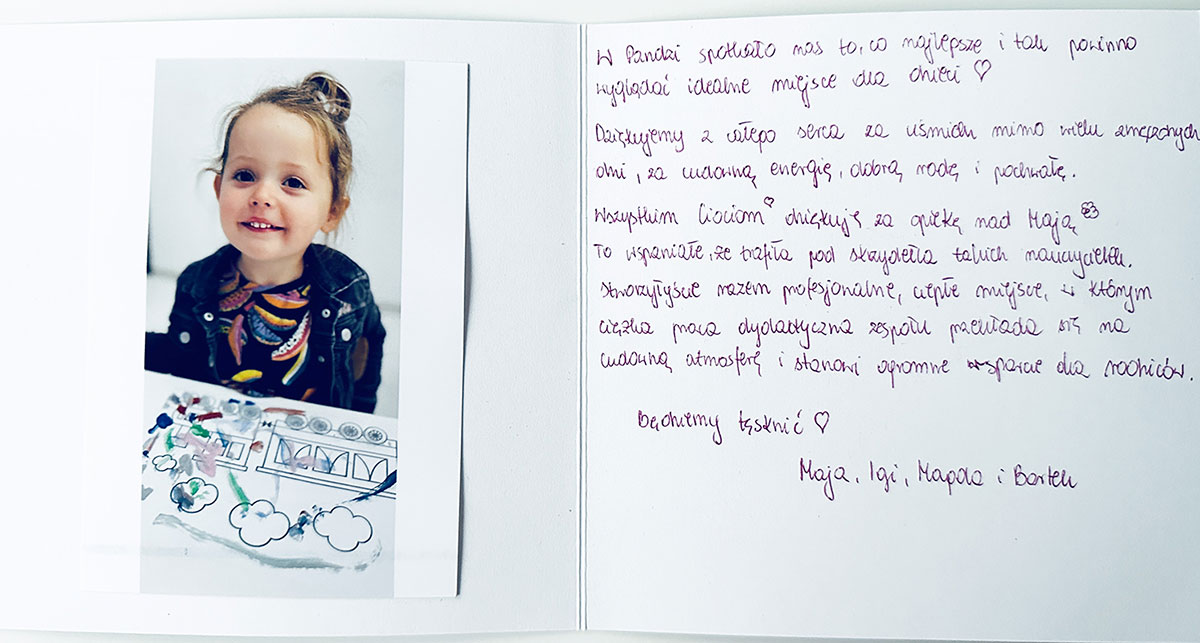 W Pandzi spotkało nas to, co najlepsze i tak powinno
wyglądać idealne miejsce dla dzieci ♡
Dziękujemy z całego serca za uśmiech mimo wielu zmęczonych
dni, za cudowną energię, dobrą radę i pochwałę.
Wszystkim Ciociom ♡ dziękuję za opiekę nad Mają
To wspaniałe, że trafiła pod skrzydełka takich nauczycielek.
Stworzyłyście razem profesjonalne, ciepłe miejsce, w którym
ciężka praca dydaktyczna zespołu przekłada się na
cudowną atmosferę i stanowi ogromne wsparcie dla rodziców.
Będziemy tęsknić ♡
Maja, Igi, Magda i Bartek